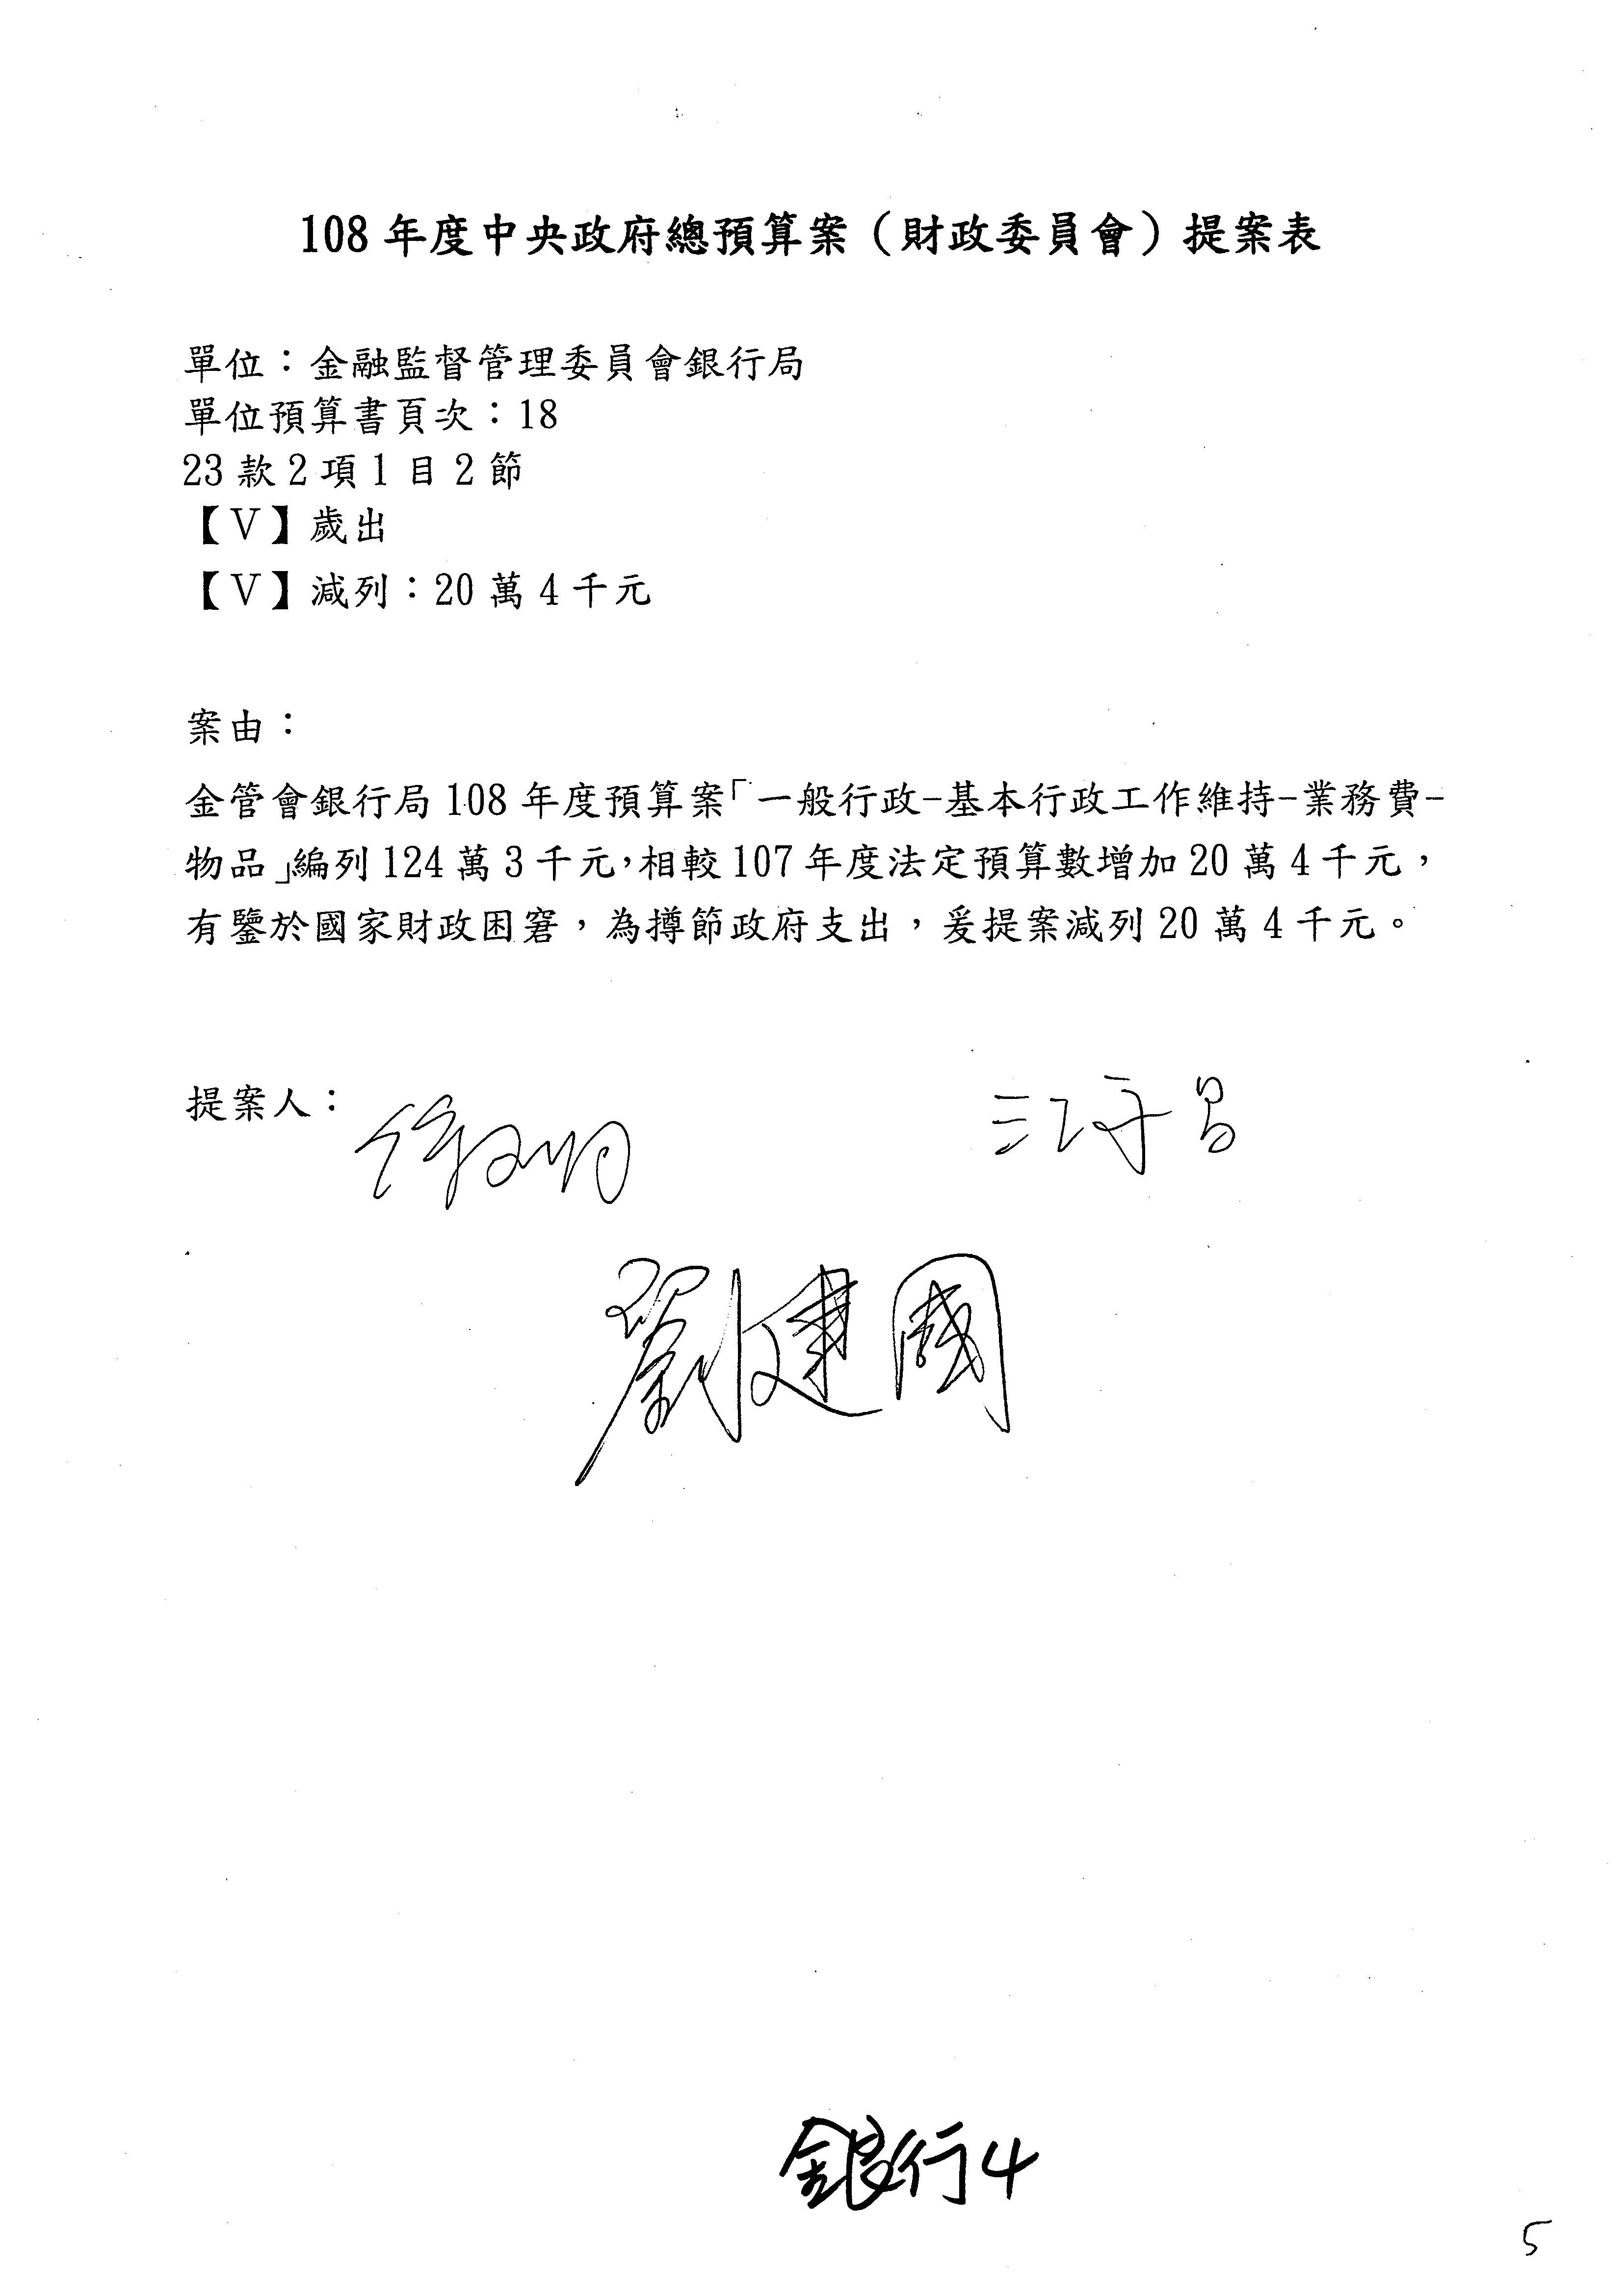 108 年度中央政府總預算案（財政委員會）提案表
單位：金融監督管理委員會銀行局
單位預算書頁次：18
23 款 2 項 1 目 2 節
【V】歲出
【V】減列：20 萬 4 千元
案由：
金管會銀行局 108 年度預算案「一般行政-基本行政工作維持-業務費-
物品」編列 124 萬 3 千元，相較 107 年度法定預算數增加 20 萬 4 千元，
有鑒於國家財政困窘，為撙節政府支出，爰提案減列 20 萬 4 千元。
提案人：
劉建國
銀行4
5